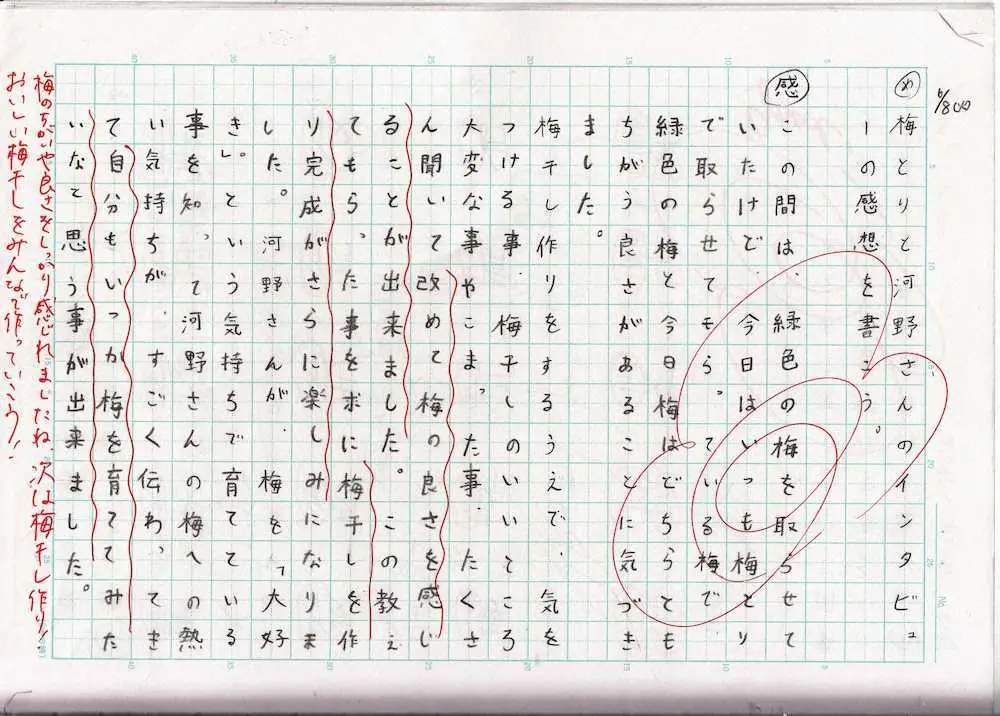 め 梅とりと河野さんのインタビュ
ーの感想を書こう。
感 この間は、緑色の梅を取らせて
いたけで、今日はいつも梅とり
で取らせてもらっている梅で
緑色の梅と今日梅はどちらとも
ちがう良さがあることに気づき
ました。
梅干し作りをするうえで、気を
つける事、梅干しのいいところ
大変な事やこまった事、たくさ
ん聞いて改めて梅の良さを感じ
ることが出来ました。この教え
てもらった事をに梅干しを作
り完成がさらに楽しみになりま
した。河野さんが、梅を「大好
き」。という気持ちで育てている
事を知って河野さんの梅への熱
い気持ちが、すごく伝わってき
て自分もいつか梅を育ててみた
いなと思う事が出来ました。
梅のちがいや良さをしっかり感じれましたね、次は梅干し作り!
おいしい梅干しをみんなで作っていこう!